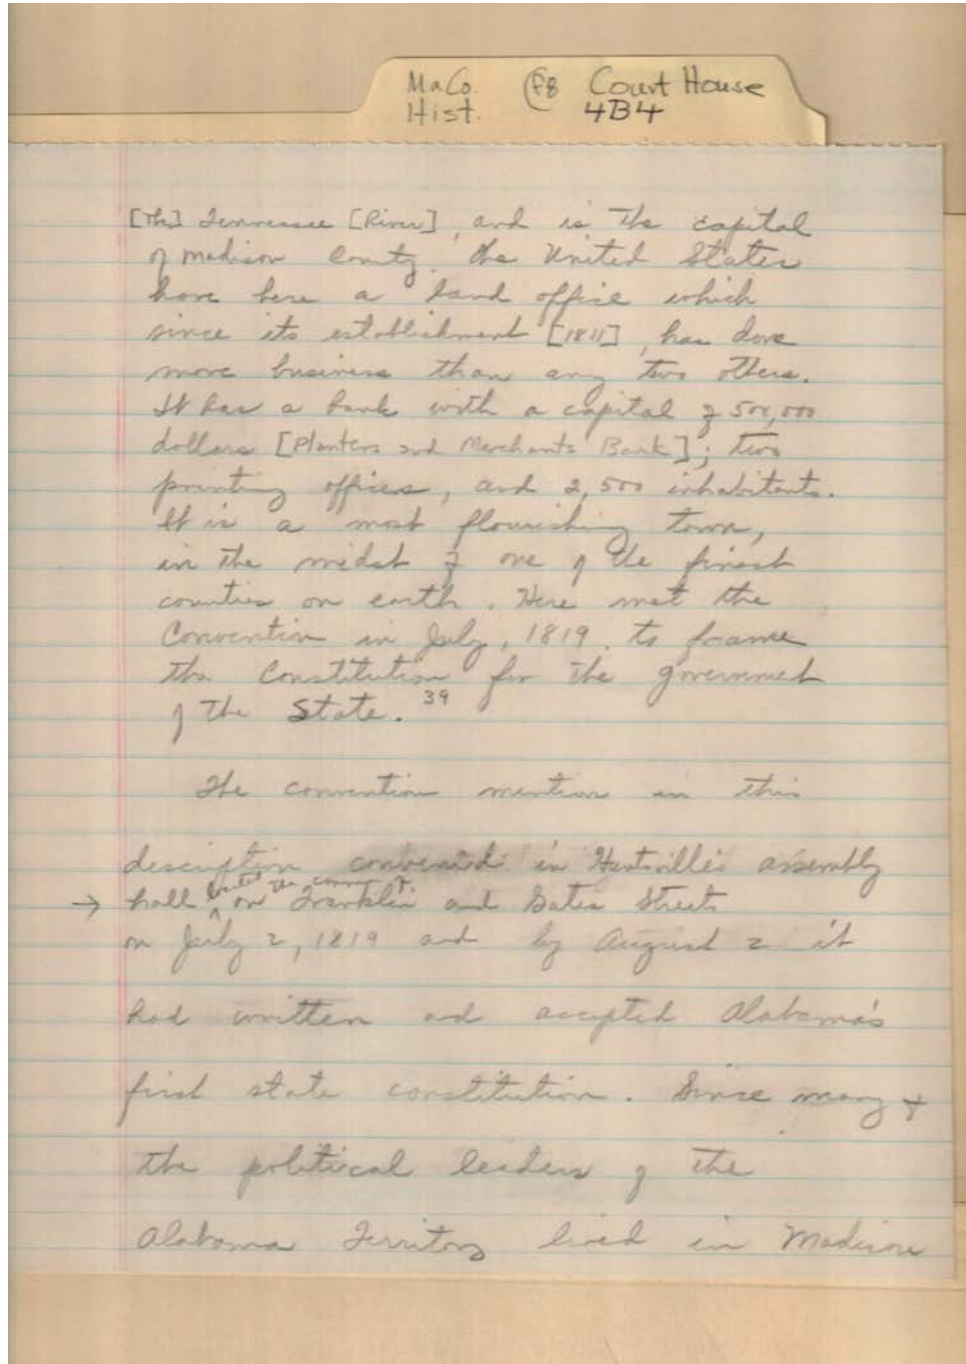 MaCo. F8 Court House
Hist. 4B4
[The] Tennessee [River], and is the capital
of Madison County. The United States
have here a land office which
since its establishment [1811], has done
more business than any two others.
It has a bank with a capital of 500,000
dollars [Planters and Merchants Bank]; two
printing offices, and 2,500 inhabitants.
It is a most flourishing town,
in the midst of one of the finest
counties on earth. Here met the
Convention in July, 1819, to frame
the Constitution for the government
of the State. 39
The convention mention in this
description convened in Huntsville's assembly
located the corner of
→ hall ^ on Franklin and Gates Streets
on July 2, 1819 and by August 2 it
had written and accepted Alabama's
first state constitution. Since many of
the political leaders of the
Alabama Territory lived in Madison